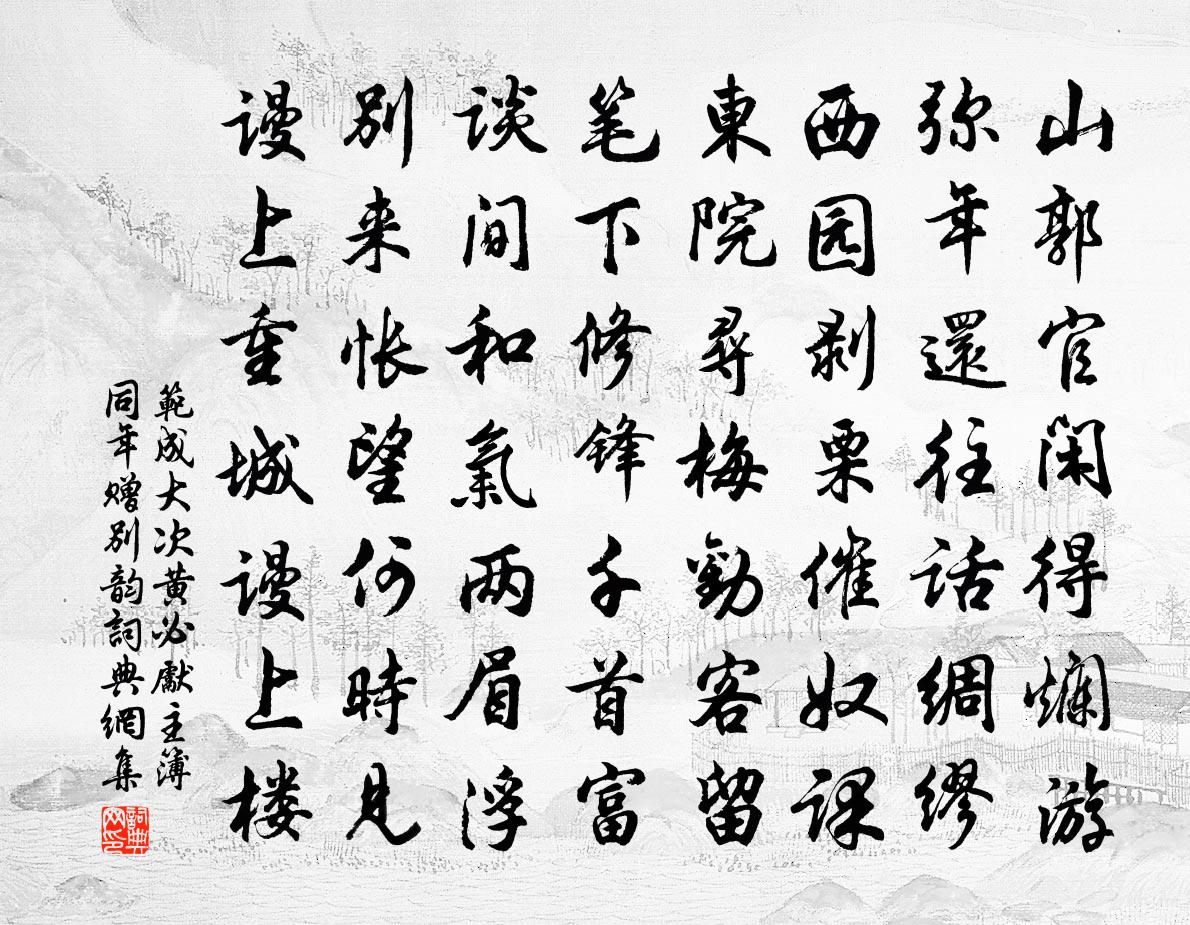 山郭官闲得烂游
弥年還往话绸缪
西园剥栗催奴课
東院尋梅勸客留
笔下修锋千首富
谈间和氣两眉浮
别来怅望何時見
谩上重城谩上楼
範成大次黄必獻主簿
同年赠别韵詞典網集